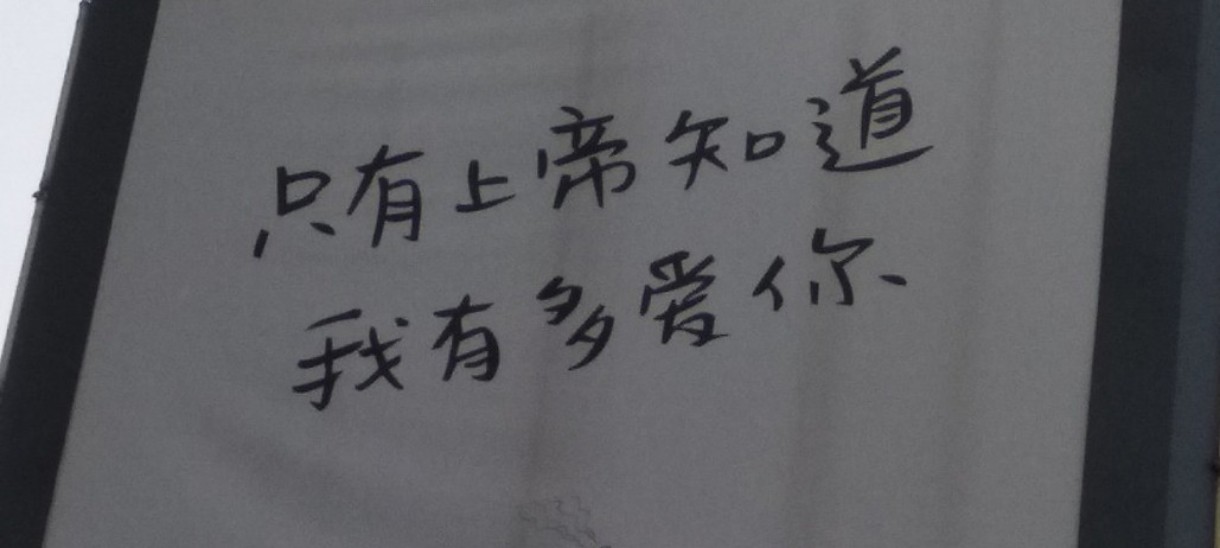 只有上帝知道
我有多爱你